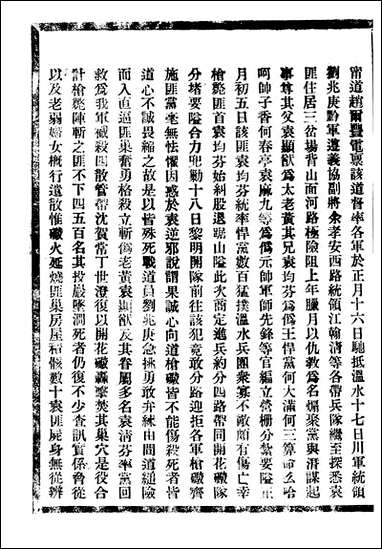 甯道趙爾豐電稟該道督率各軍於正月十六日馳抵溫水十七日川軍統領
劉兆庚黔軍遵義協副將朱孝安西路統領江翰清等各帶兵隊繼至探悉袁
匪住居三岔場背山面河路極險阻上年臘月以仇教爲名煽聚黨與潛謀起
事尊其父袁顯猷爲太老黃其兄袁均芬爲僞王悍黨何大滿何三算命么哈
呵師子香何春亭袁麻九等爲僞元帥軍師先鋒等官編立營柵分紥要隘正
月初五日該匪袁均芬統率悍黨數百猛撲溫水兵團衆寡不敵頗有傷亡幸
槍斃匪首袁均芬始糾股退踞山隘此次商定進兵約分四路帶同開花礮隊
分堵要隘合力兜勦十八日黎明開隊前往該犯竟敢分路迎拒各軍槍礮齊
施匪黨毫無怯懼因惑於袁逆邪說謂果誠心向道槍礮皆不能傷殺死者皆
道心不誠畏縮之故是以皆殊死戰道員劉兆庚急挑勇敢弁練由間道縋險
而入直逼匪巢奮勇格殺立斬僞老黃袁顯猷及其眷屬多名袁清芬率黨回
救爲我軍截殺四散管帶沈賀常丁世澄復以開花礮轟擊焚其巢穴是役合
計槍斃陣斬之匪不下四五百名其投巖墜澗死者仍復不少查訊實係脅從
以及老弱婦女概行遣散惟礮火延燒匪巢房屋糧骸數十袁匪屍身無從辨